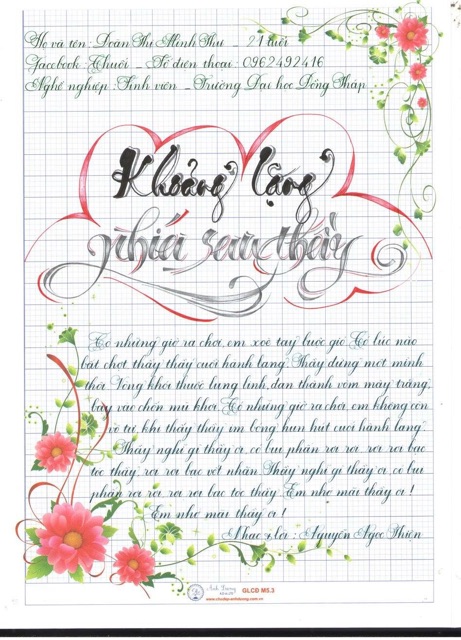 Họ và tên : Đoàn Thị Minh Thư _ 21 tuổi
Facebook : Chuối _ Số điện thoại : 0962492416
Nghề nghiệp : Sinh viên _ Trường Đại học Đồng Tháp
Khoảng lặng
phía sau thầy
Có những giờ ra chơi, em xoè tay lước gió. Có lúc nào
bất chợt thấy thầy cuối hành lang. Thầy đứng một mình
thôi. Vòng khói thuốc lung linh, đan thành vòm mây trắng,
bay vào chốn mù khơi. Có những giờ ra chơi, em không còn
vô tư, khi thấy thầy um bóng hun hút cuối hành lang.
Thầy nghĩ gì thầy ơi, có bụi phấn rơi rơi rơi rơi bạc
tóc thầy, rơi rơi bạc vết nhăn. Thầy nghĩ gì thầy ơi, có bụi
phấn rơi rơi rơi rơi bạc tóc thầy. Em nhớ mãi thầy ơi !
Em nhớ mãi thầy ơi !
Nhạc & lời : Nguyễn Ngọc Thiện
Ánh Dương
GLCĐ MS.3
www.chudep-anhduong.com.vn